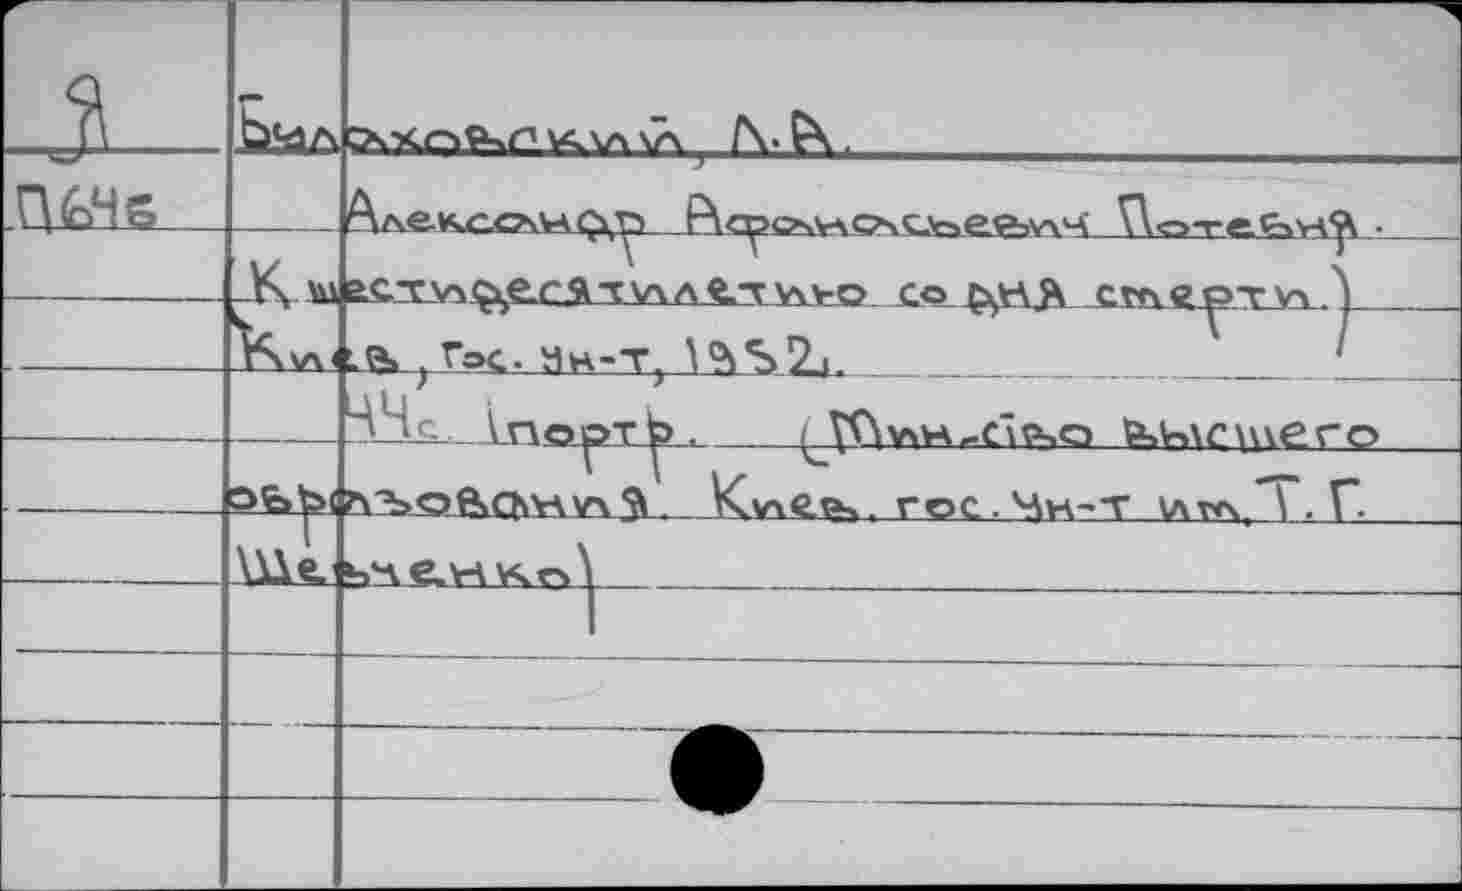 Я
Билоховский, Л.А.
П64б Александр Афанасьевич Потебня.
(К шестидесятилетию со дня смерти.)
Киев, Гос. Ун-т, 1952.
44с. 1 портр. (Мин-ство высшего
образования. Киев. гос. Ун-т им. Т.Г.
Шевченко)